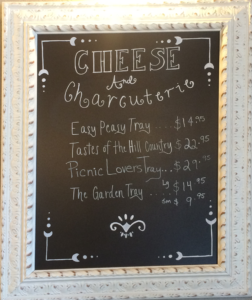 CHEESE
And
Charcuterie
Easy Peasy Tray .... $14.95
Tastes of the Hill Country $22.95
Picnic Lovers Tray... $29.95
The Garden Tray ..... Lg $14.95
Sm $9.95